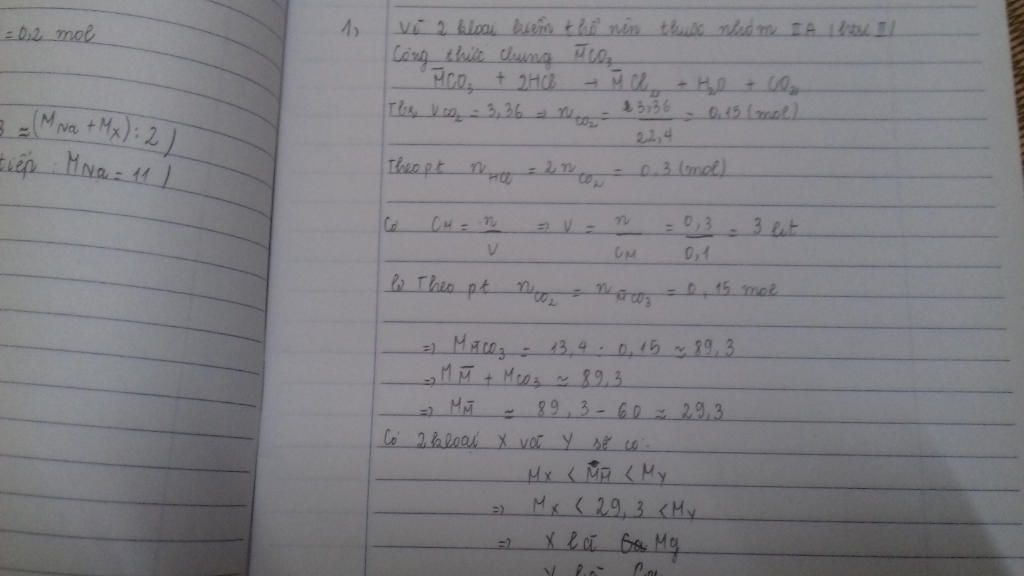 = 0,2 mol
≈ (MNa + Mx) : 2)
tiếp : MNa = 11)
1, Vì 2 kloại kiềm thổ nên thuộc nhóm IIA (htrị II)
Công thức chung M̄CO3
M̄CO3 + 2HCl → M̄Cl2 + H2O + CO2
VCO2 = 3,36 => nCO2 = 3,36 / 22,4 = 0,15 (mol)
Theo pt nHCl = 2nCO2 = 0,3 (mol)
Có CM = n / V => V = n / CM = 0,3 / 0,1 = 3 lít
Theo pt nCO2 = nM̄CO3 = 0,15 mol
=> MM̄CO3 = 13,4 : 0,15 ≈ 89,3
=> MM̄ + MCO3 ≈ 89,3
=> MM̄ ≈ 89,3 - 60 ≈ 29,3
Có 2 kloại X và Y sẽ có:
Mx < MM̄ < My
=> Mx < 29,3 < My
=> X là Mg
Y là